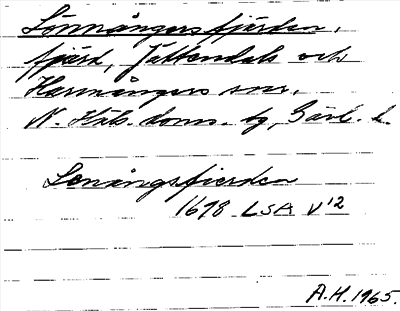 Lönnångersfjärden,
fjärd, Jättendals och
Harmångers snr,
N. Häls. doms. bg, Gävl. l.
Lenångsfierden
1698 LSA V12
A.H. 1965.